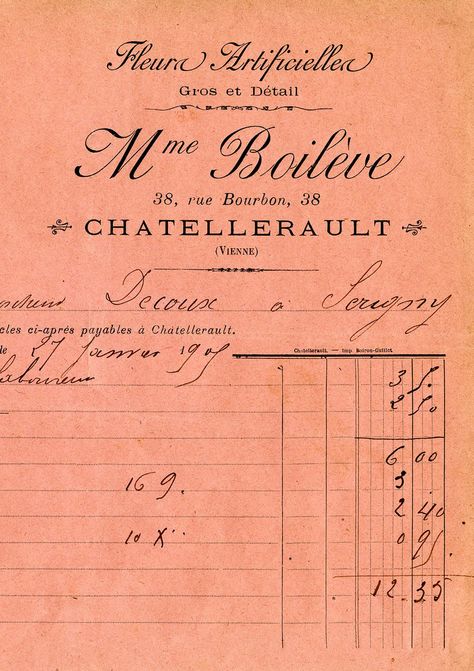 Fleurs Artificielles
Gros et Détail
Mme Boilève
38, rue Bourbon, 38
CHATELLERAULT
(VIENNE)
Decoux à Serigny
cles ci-après payables à Châtellerault.
de 27 Janvier 1905
Chatellerault. — Imp. Boiron-Guillot.
3 50
2 50
6 00
169. 3
2 40
10 X 0 95
12.35